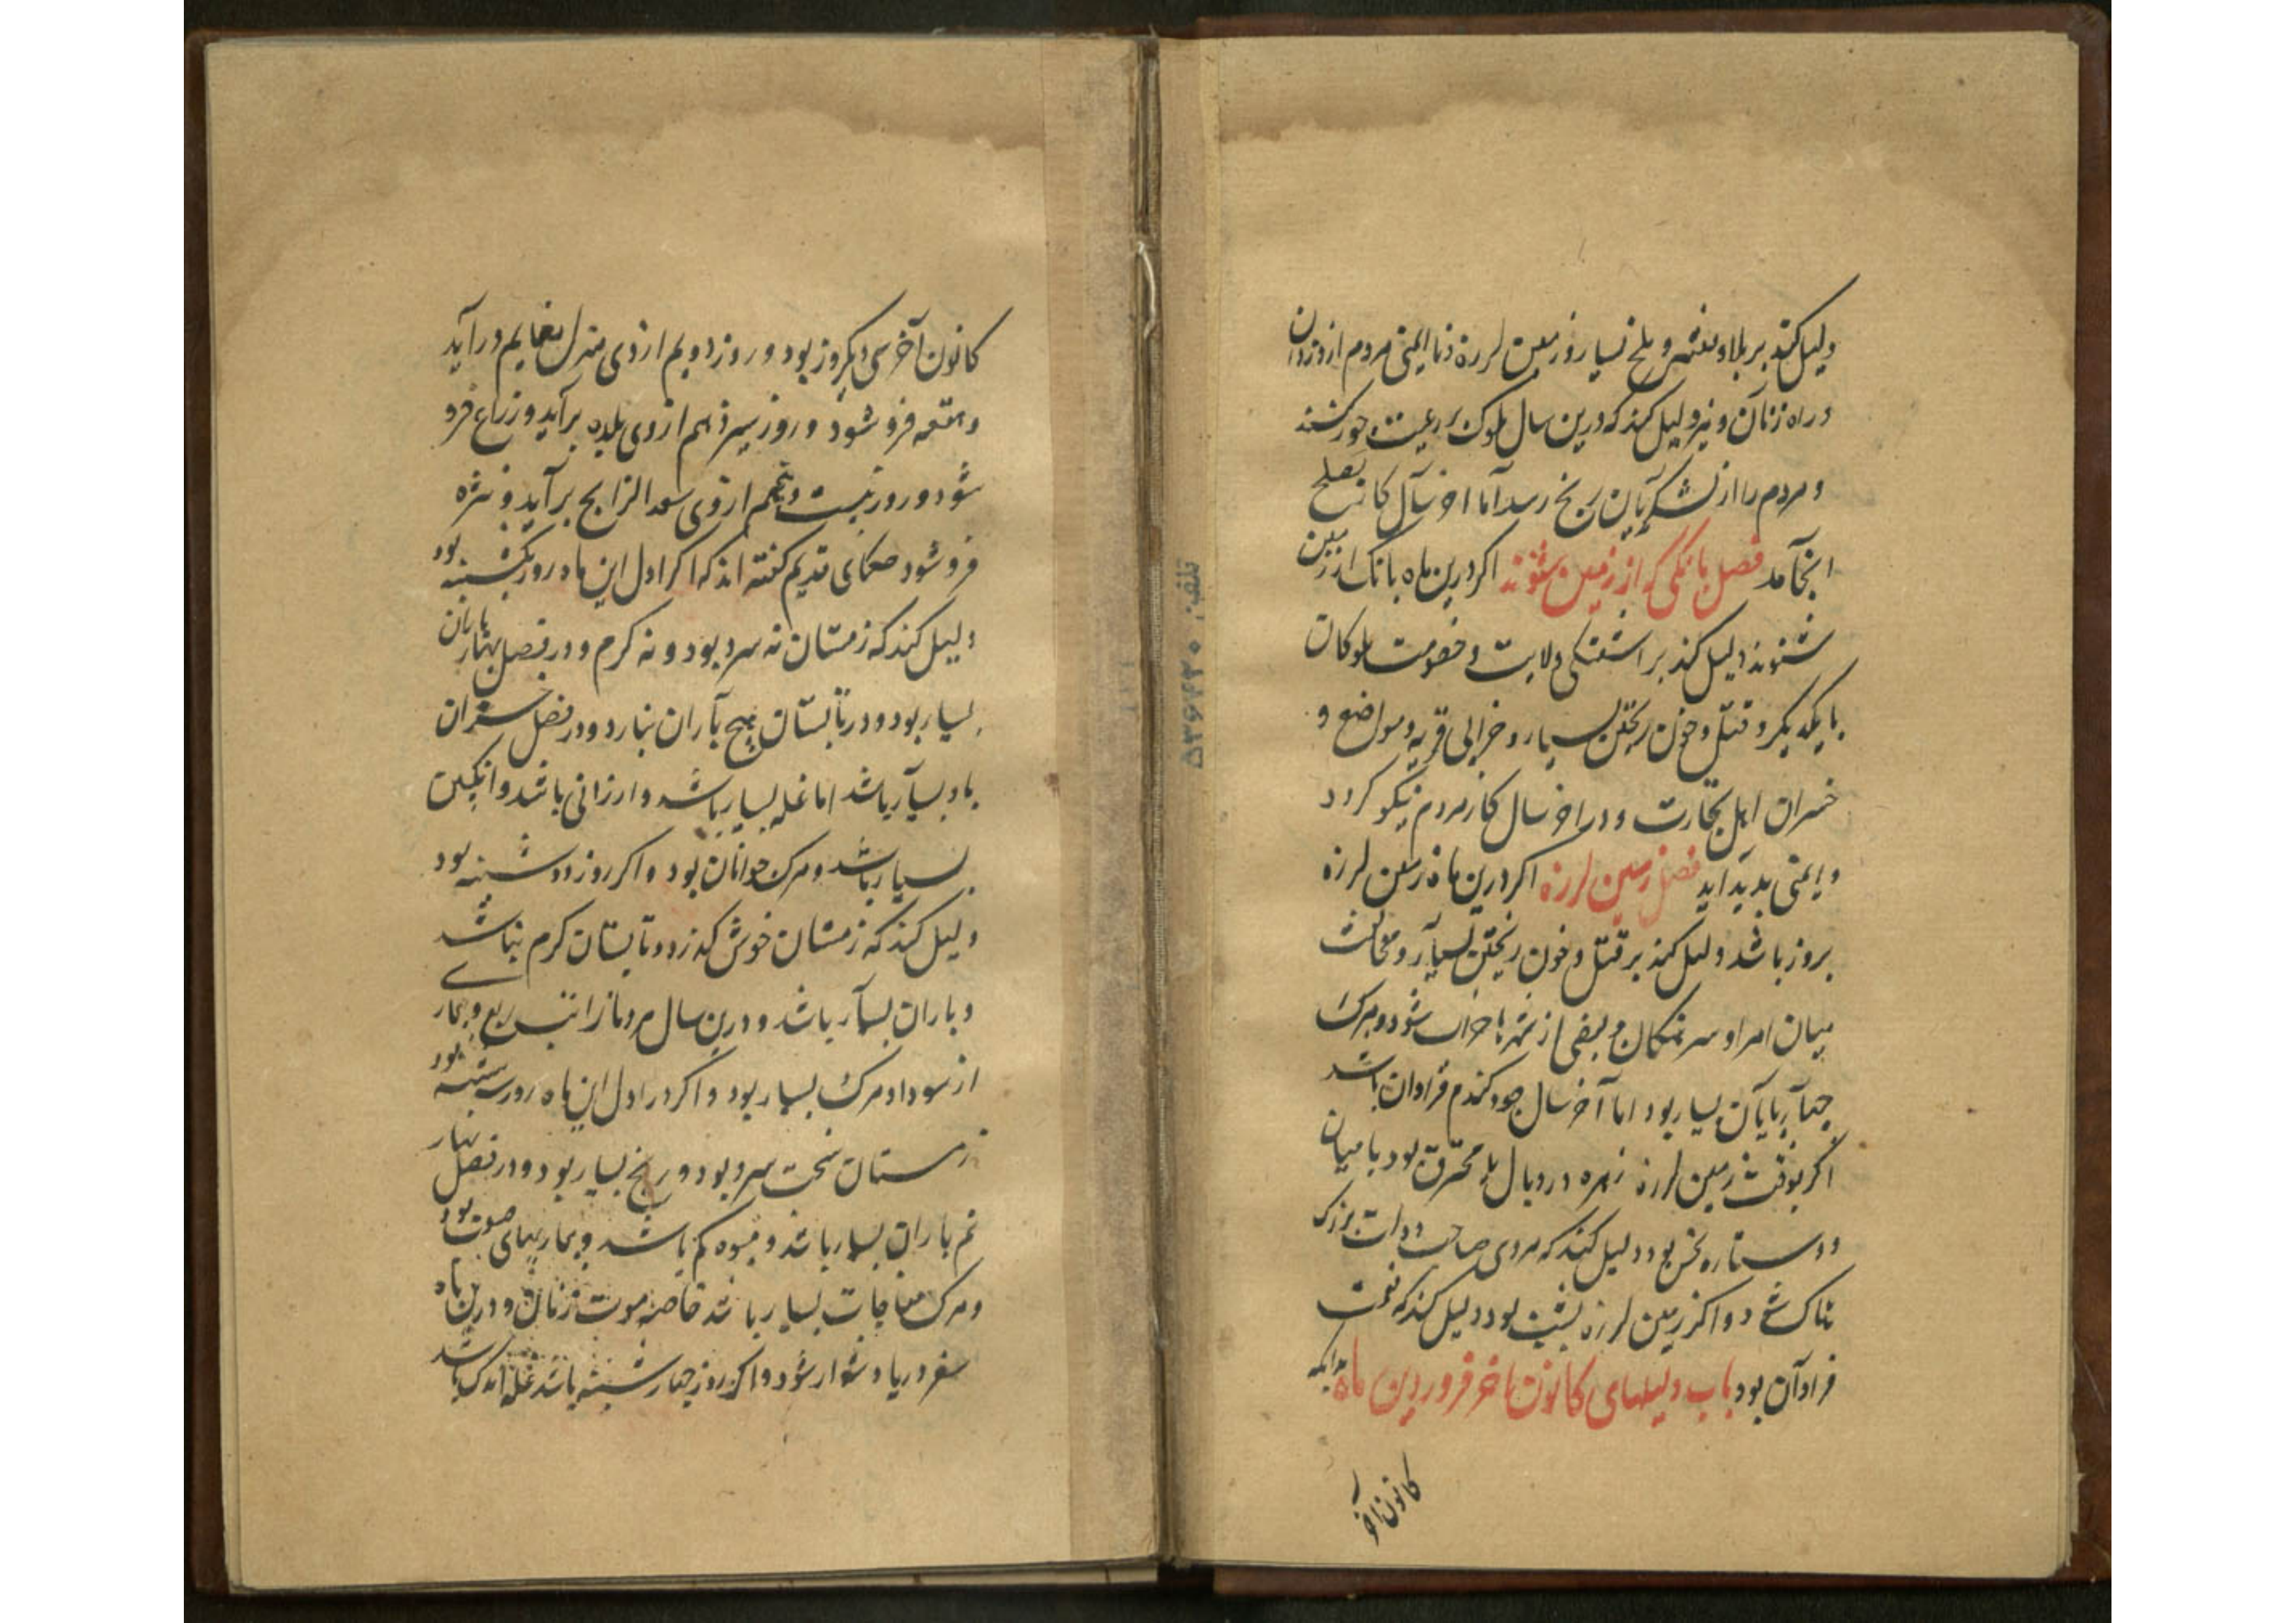 دلیل کند بر بلا و فتنه و ملخ بسیار و زمین لرزه و نا ایمنی مردم از دزدان
و راه زنان و نیز دلیل کند که درین سال ملوک بر رعیت جور کنند
و مردم را از لشکریان رنج رسد اما آخر سال کار بصلح
انجامد فصل بانکی که از زمین شنوند اکر درین ماه بانک از زمین
شنوند دلیل کند بر اشفتکی ولایت و خصومت ملوکان
با یکدیکر و قتل و خون ریختن بسیار و خرابی قریه و مواضع و
خسران اهل تجارت و در اخر سال کار مردم نیکو کردد
و ایمنی بدید اید فصل زمین لرزه اکر درین ماه زمین لرزه
بروز باشد دلیل کند بر قتل و خون ریختن بسیار و مخالفت
میان امرا و سرهنکان و بعضی از شهرها خراب شود و مرک
چهارپایان بسیار بود اما آخر سال جو و کندم فراوان باشد
اکر بوقت زمین لرزه زهره در وبال یا محترق بود یا میان
دو ستاره نحس بود دلیل کند که مردی صاحب دولت بزرک
هلاک شود و اکر زمین لرزه بشب بود دلیل کند که نعمت
فراوان بود باب دلیلهای کانون اخر فروردین ماه بدانکه
کانون آخر
کانون آخر سی و یکروز بود و روز دویم از وی منزل نعایم درآید
و هقعه فرو شود و روز سیزدهم از وی بلده برآید و ذراع فرو
شود و روز بیست و پنجم از وی سعد الذابح برآید و نثره
فرو شود حکمای قدیم کفته اند که اکر اول این ماه روز یکشنبه بود
دلیل کند که زمستان نه سرد بود و نه کرم و در فصل بهار باران
بسیار بود و در تابستان هیچ باران نبارد و در فصل خزان
باد بسیار باشد اما غله بسیار باشد و ارزانی باشد و انکبین
بسیار باشد و مرک جوانان بود و اکر روز دوشنبه بود
دلیل کند که زمستان خوش کذرد و تابستان کرم نباشد
و باران بسیار باشد و درین سال مردمان را تب ربع و بیماری
از سودا و مرک بسیار بود و اکر در اول این ماه روز سه شنبه بود
زمستان سخت سرد بود و رنج بسیار بود و در فصل بهار
نم باران بسیار باشد و میوه کم باشد و بیماریهای صعب بود
و مرک مفاجات بسیار باشد خاصه موت زنان و درین ماه
سفر دریا دشوار شود و اکر روز چهارشنبه باشد غله اندک باشد
تلفن: ۵۳۶۴۳۰